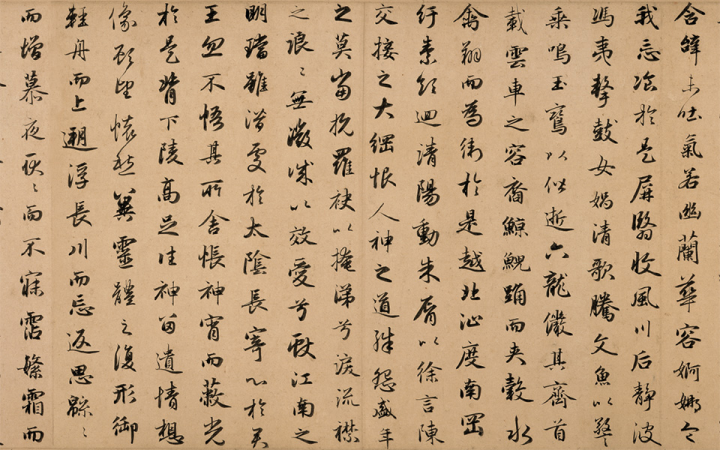 含辭未吐氣若幽蘭華容婀娜令
我忘湌於是屏翳收風川后靜波
馮夷擊鼓女媧清歌騰文魚以警
乘鳴玉鸞以偕逝六龍儼其齊首
載雲車之容裔鯨鯢踊而夾轂水
禽翔而為衛於是越北沚度南岡
紆素領迴清陽動朱脣以徐言陳
交接之大綱恨人神之道殊怨盛年
之莫當抗羅袂以掩涕兮淚流襟
之浪〻無微誠以效愛兮獻江南之
明璫雖潛處於太陰長寄心於君
王忽不悟其所舍悵神宵而蔽光
於是背下陵高足往神留遺情想
像顧望懷愁冀靈體之復形御
輕舟而上遡浮長川而忘返思緜〻
而增慕夜耿〻而不寐霑繁霜而